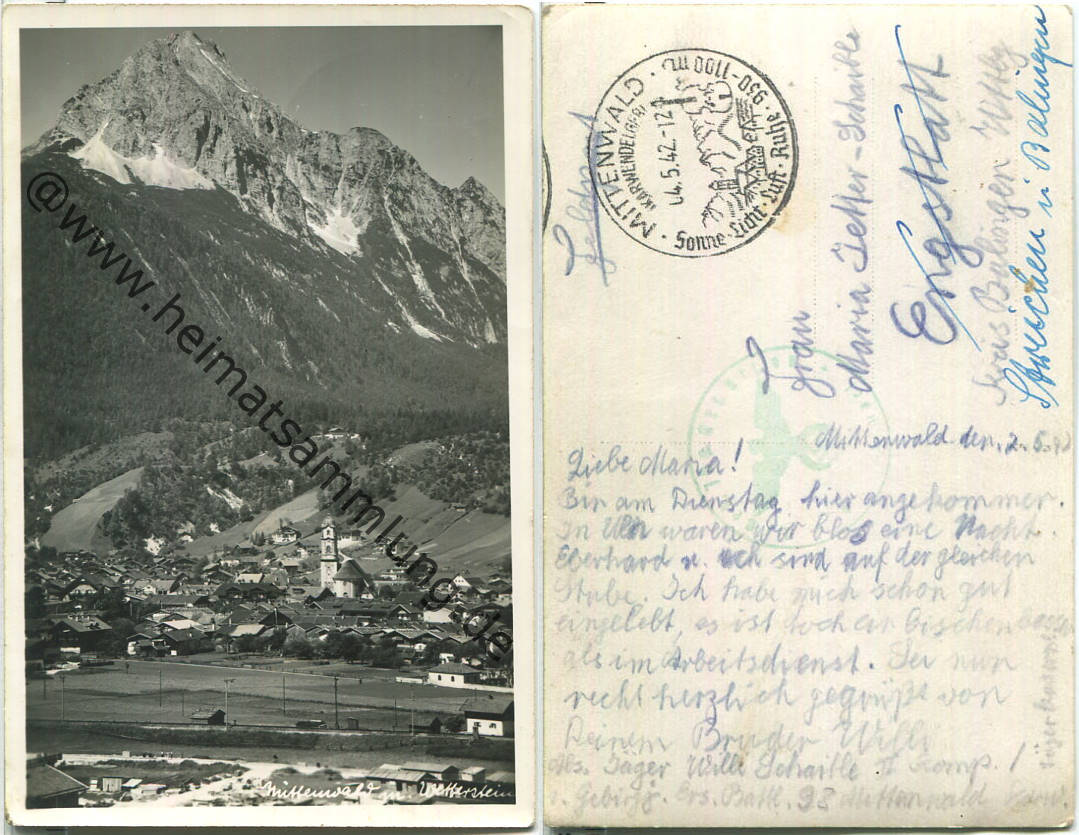 @www.heimatsammlung.de
Mittenwald m. Wetterstein
Feldpost
MITTENWALD
(KARWENDELGEB.)
04.5.42.-12
920-1100 m
Sonne·Licht·Luft·Ruhe
Frau
Maria Jetter-Schaible
Engstlatt
Kreis Balingen Wttbg
Streichen ü Balingen
Mittenwald den, 2.5.42
Liebe Maria!
Bin am Dienstag hier angekommen.
In Ulm waren wir blos eine Nacht.
Eberhard u. ich sind auf der gleichen
Stube. Ich habe mich schon gut
eingelebt, es ist doch ein bischen besser
als im Arbeitsdienst. Sei nun
recht herzlich gegrüßt von
Deinem Bruder Willi
Abs. Jäger Willi Schaible II Komp. /
Gebirgs. Ers. Batl. 98 Mittenwald
Jägerkaserne